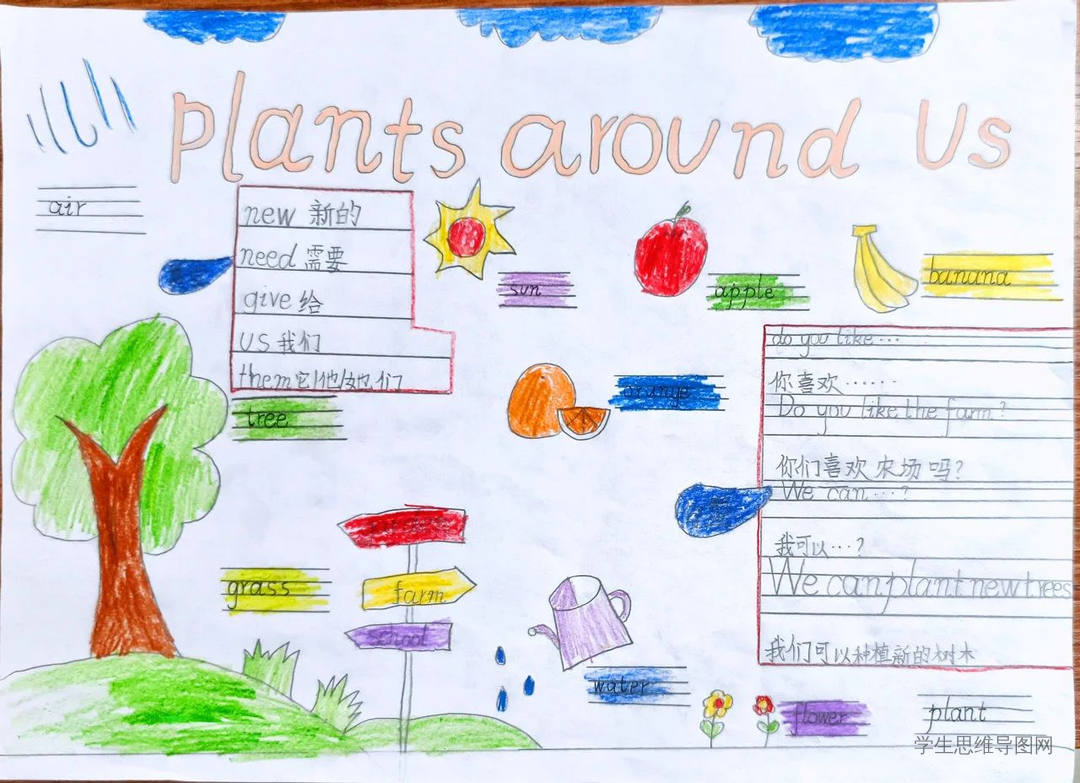 Plants around Us
air
new 新的
need 需要
give 给
us 我们
them 它/他/她们
sun
apple
banana
tree
orange
do you like...
你喜欢......
Do you like the farm?
你们喜欢农场吗?
We can....?
我可以...?
We can plant new trees
我们可以种植新的树木
grass
farm
school
water
flower
plant
学生思维导图网